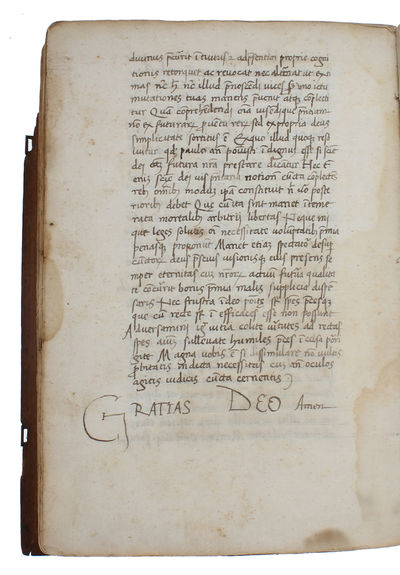 divinus pcurrit ituitus & ad psentiam proprie cogni
tionis retorquet ac revocat nec alternat ut exi
mas nc h nc illud pnoscendi vices uno ictu
mutationes tuas manens pvenit atq complecti
tur Qua comprehendendi oia visendiq pntiam
no ex futurarz pventu rerz sed ex propria deus
simplicitate sortitus e Ex quo illud quoq reso
lvitur qd paulo an posuisti idignu esse si scie
dei cam futura nra prestare dicatur Hec e
vis pntaria notione cuncta complectes
reb omib modu ipa constituit n vo poste
rioribus debet Que cu ita sint manet iteme
rata mortalib arbitrii libertas Neque ini
que leges solutis oi necessitate voluntatib pmia
penasq proponut Manet etiaz spectator desup
cunctorz deus pscius visionisq eius presens se
mper eternitas cuz nrorz actuu futura qualita
te concurrit bonis pmia malis supplicia dispe
sans Nec frustra i deo posite st spes pcesq
que cu recte st i efficaces esse non possunt
Adversamini ig vitia colite virtutes ad rectas
spes aium sublevate humiles pces i excelsa pori
gite Magna vobis e si dissimulare no vultis
pbitatis indicta necessitas cuz an oculos
agitis iudicis cuncta cernentis
GRATIAS DEO Amen